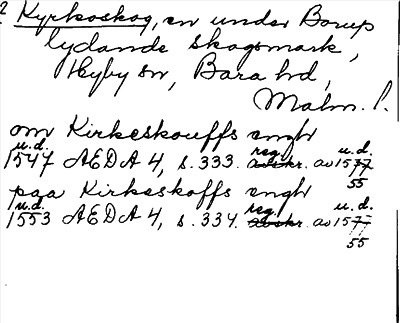 2 Kyrkoskog, en under Borup
lydande skogsmark,
Hyby sn, Bara hd,
Malm. l.
om Kirkeskouffs engh
u.d. reg. u.d.
1547 AEDA 4, s. 333. avskr. av 1577
55
paa Kirkeskoffs engh
u.d. reg. u.d.
1553 AEDA 4, s. 334. avskr. av 1577
55